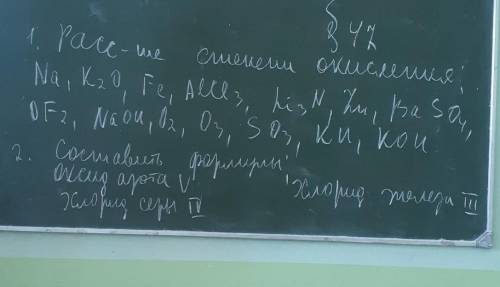 § 47
1. Расс-те степени окисления:
Na, K2O, Fe, AlCl3, Li3N, Zn, BaSO4,
OF2, NaOH, O2, O3, SO3, KH, KOH
2. Составить формулы:
Оксид азота V
Хлорид железа III
Хлорид серы IV